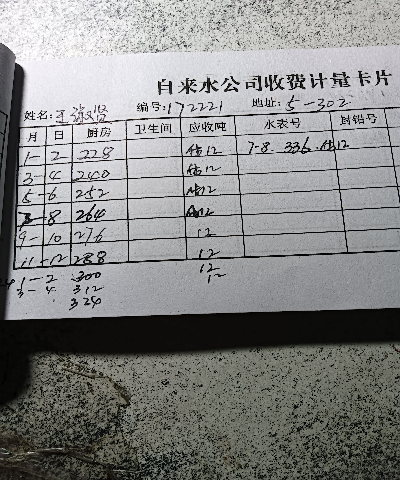 自来水公司收费计量卡片
姓名: 王 贤 编号: 172221 地址: 5-302
月 日 厨房 卫生间 应收吨 水表号 封铅号
1-2 228 估12 7-8. 336. 估12
3-4 240 估12
5-6 252 估12
8 264 12
9-10 276 12
11-12 288 12
1-2 300 12
3-4 312 12
324